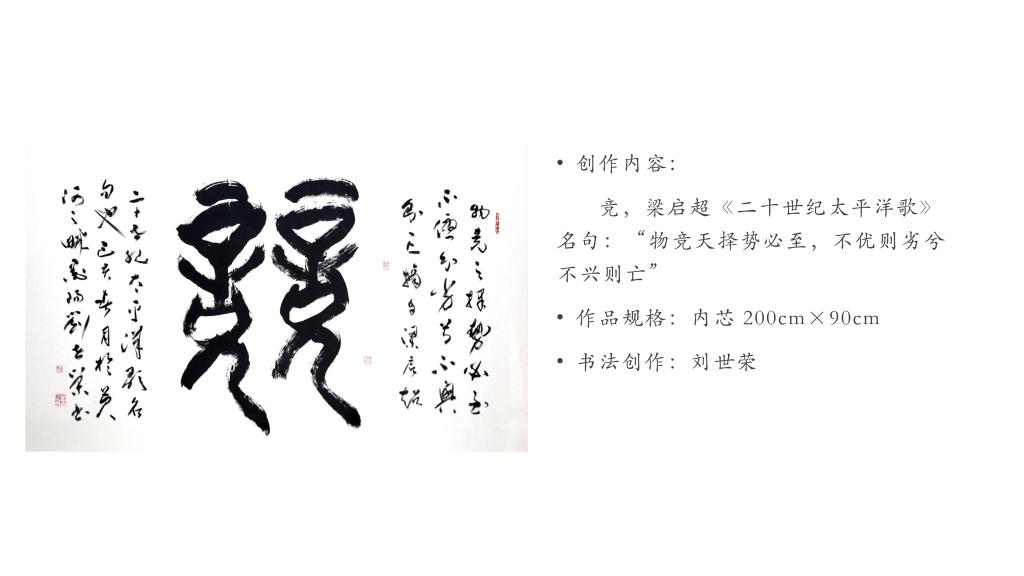 物竞天择势必至
不优则劣兮不兴
则亡 摘句梁启超
競
二十世纪太平洋歌名
句也 己亥春月於黄
河之畔 刘世荣书
• 创作内容：
竞，梁启超《二十世纪太平洋歌》
名句：“物竞天择势必至，不优则劣兮
不兴则亡”
• 作品规格：内芯 200cm×90cm
• 书法创作：刘世荣